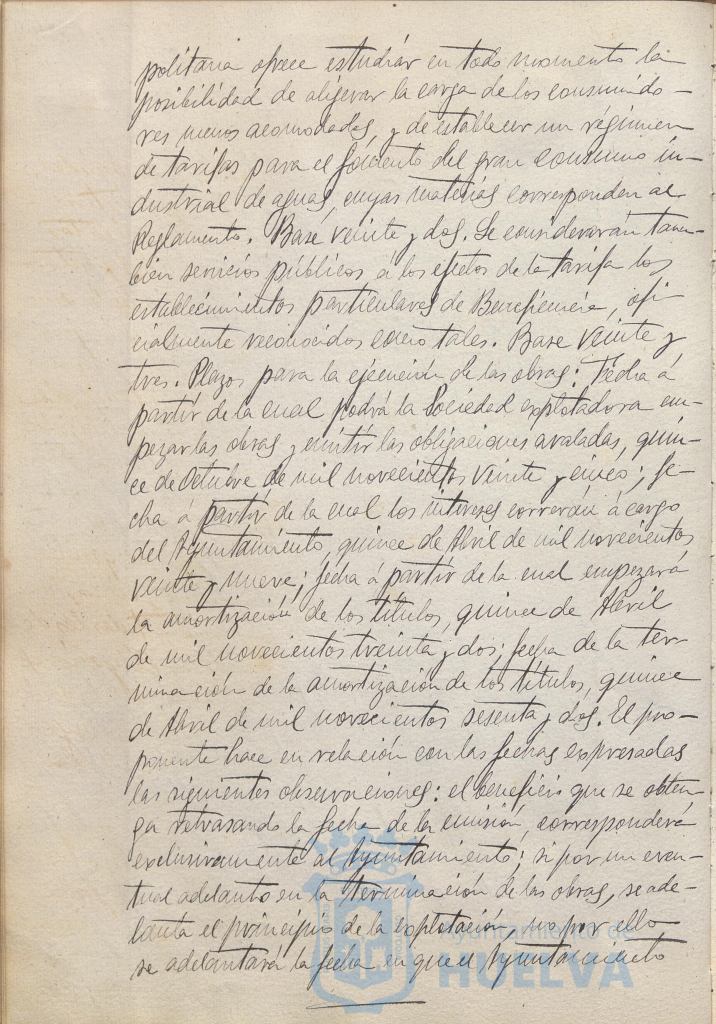 politana ofrece estudiar en todo momento la
posibilidad de aligerar la carga de los consumido-
res menos acomodados, y de establecer un régimen
de tarifas para el fomento del gran consumo in-
dustrial de aguas, cuyas materias corresponden al
Reglamento. Base veinte y dos. Se considerarán tam-
bien servicios públicos á los efectos de la tarifa los
establecimientos particulares de Beneficencia, ofi-
cialmente reconocidos como tales. Base veinte y
tres. Plazos para la ejecución de las obras: Fecha á
partir de la cual podrá la Sociedad explotadora em-
pezar las obras y emitir las obligaciones avaladas, quin-
ce de Octubre de mil novecientos veinte y cinco; fe-
cha á partir de la cual los intereses correrán á cargo
del Ayuntamiento, quince de Abril de mil novecientos
veinte y nueve; fecha á partir de la cual empezará
la amortización de los títulos, quince de Abril
de mil novecientos treinta y dos; fecha de la ter-
minación de la amortización de los títulos, quince
de Abril de mil novecientos sesenta y dos. El pro-
ponente hace en relación con las fechas expresadas
las siguientes observaciones: el beneficio que se obten-
ga retrasando la fecha de la emisión, corresponderá
exclusivamente al Ayuntamiento; si por un even-
tual adelanto en la terminación de las obras, se ade-
lanta el principio de la explotación, no por ello
se adelantará la fecha en que el Ayuntamiento
Ayuntamiento de
HUELVA